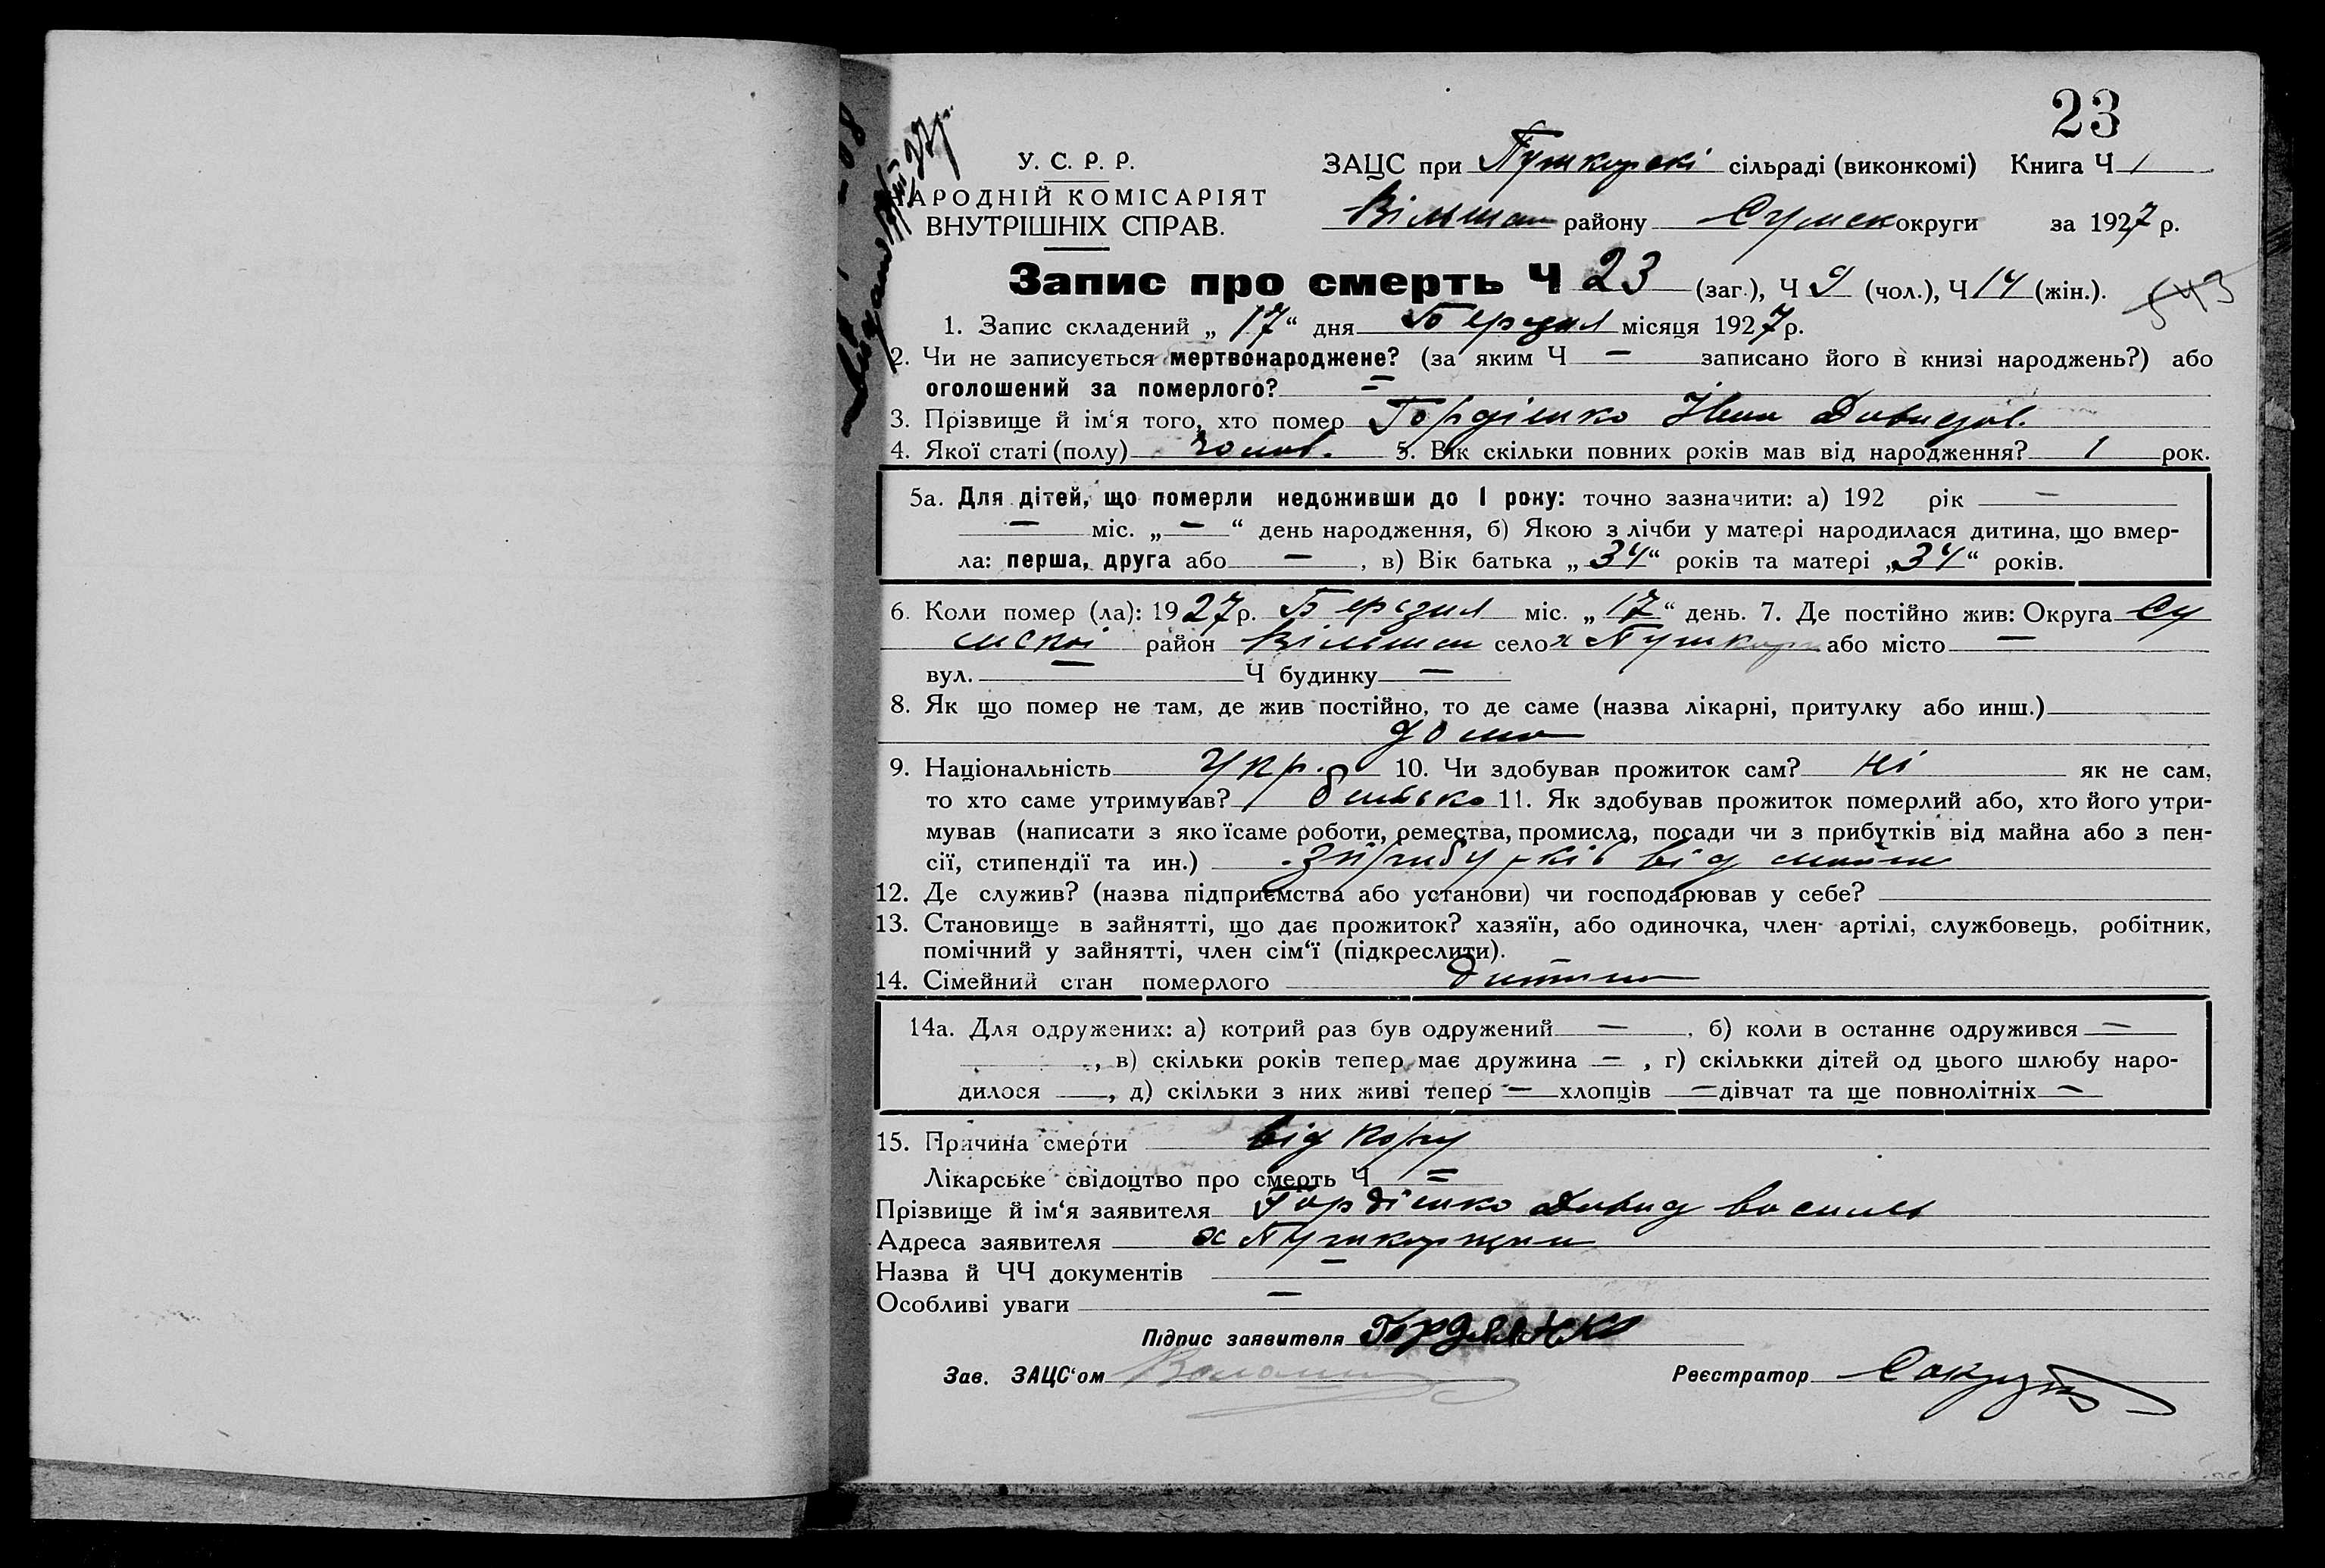 23
У. С. Р. Р.
НАРОДНІЙ КОМІСАРІЯТ
ВНУТРІШНІХ СПРАВ.
ЗАЦС при Пушкарскі сільраді (виконкомі) Книга Ч 1
Вільшан району Сумск округи за 1927 р.
Запис про смерть Ч 23 (заг.), Ч 9 (чол.), Ч 14 (жін.).
543
1. Запис складений „ 17 “ дня Березіля місяця 1927 р.
2. Чи не записується мертвонароджене? (за яким Ч — записано його в книзі народжень?) або
оголошений за померлого? =
3. Прізвище й ім‘я того, хто помер Гордієнко Іван Давидов.
4. Якої статі (полу) чолов. 5. Вік скільки повних років мав від народження? 1 рок.
5а. Для дітей, що померли недоживши до 1 року: точно зазначити: а) 192 рік —
— міс. „ — “ день народження, б) Якою з лічби у матері народилася дитина, що вмер-
ла: перша, друга або — , в) Вік батька „ 34 “ років та матері „ 34 “ років.
6. Коли помер (ла): 1927 р. Березіля міс. „ 17 “ день. 7. Де постійно жив: Округа Су
мскої район Вільшан село х Пушкар або місто —
вул. — Ч будинку —
8. Як що помер не там, де жив постійно, то де саме (назва лікарні, притулку або инш.)
дома
9. Національність Укр. 10. Чи здобував прожиток сам? Ні як не сам,
то хто саме утримував? батько 11. Як здобував прожиток померлий або, хто його утри-
мував (написати з яко їсаме роботи, ремества, промисла, посади чи з прибутків від майна або з пен-
сії, стипендії та ин.) З прибутків від майна
12. Де служив? (назва підприємства або установи) чи господарював у себе?
13. Становище в зайнятті, що дає прожиток? хазяїн, або одиночка, член артілі, службовець, робітник,
помічний у зайнятті, член сім‘ї (підкреслити).
14. Сімейний стан померлого дитина
14а. Для одружених: а) котрий раз був одружений — , б) коли в останнє одружився —
, в) скільки років тепер має дружина — , г) скількки дітей од цього шлюбу наро-
дилося , д) скільки з них живі тепер — хлопців — дівчат та ще повнолітніх —
15. Причина смерти від кору
Лікарське свідоцтво про смерть Ч =
Прізвище й ім‘я заявителя Гордієнко Давид Василь
Адреса заявителя х Пушкарщина
Назва й ЧЧ документів —
Особливі уваги —
Підпис заявителя Гордиенко
Зав. ЗАЦС‘ом
Реєстратор